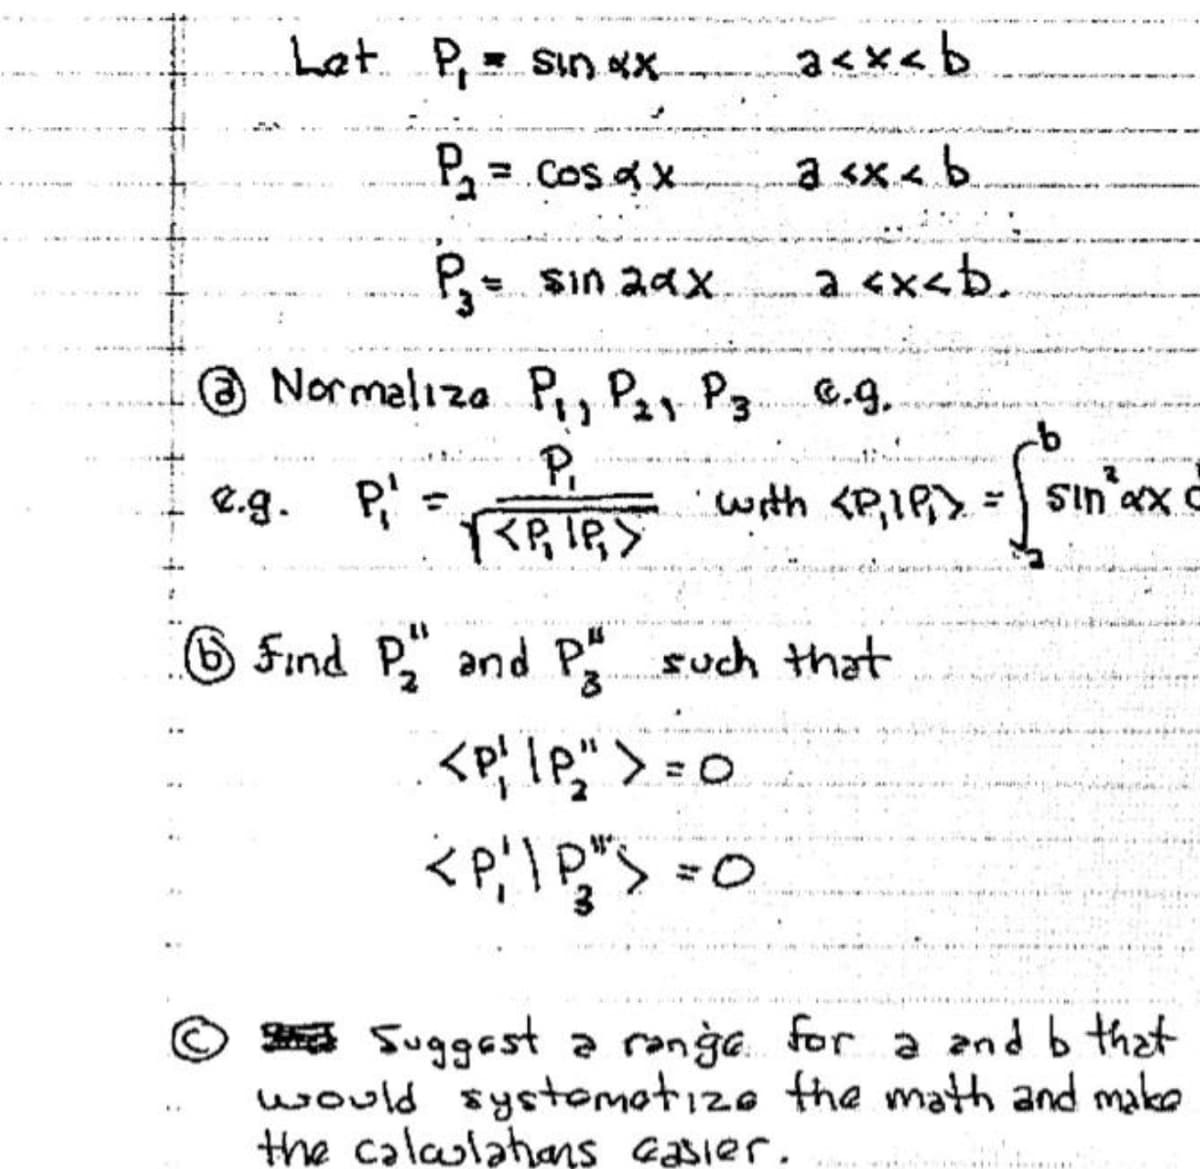 Let P₁ = sin αx a<x<b
P₂ = cos αx a<x<b
P₃ = sin 2αx a<x<b.
ⓐ Normalize P₁, P₂, P₃ e.g.
e.g. P₁' = P₁ / √<P₁|P₁> with <P₁|P₁> = ∫ₐᵇ sin²αx d
ⓑ Find P₂" and P₃" such that
<P₁'|P₂"> = 0
<P₁'|P₃"'> = 0
ⓒ Suggest a range for a and b that
would systematize the math and make
the calculations easier.